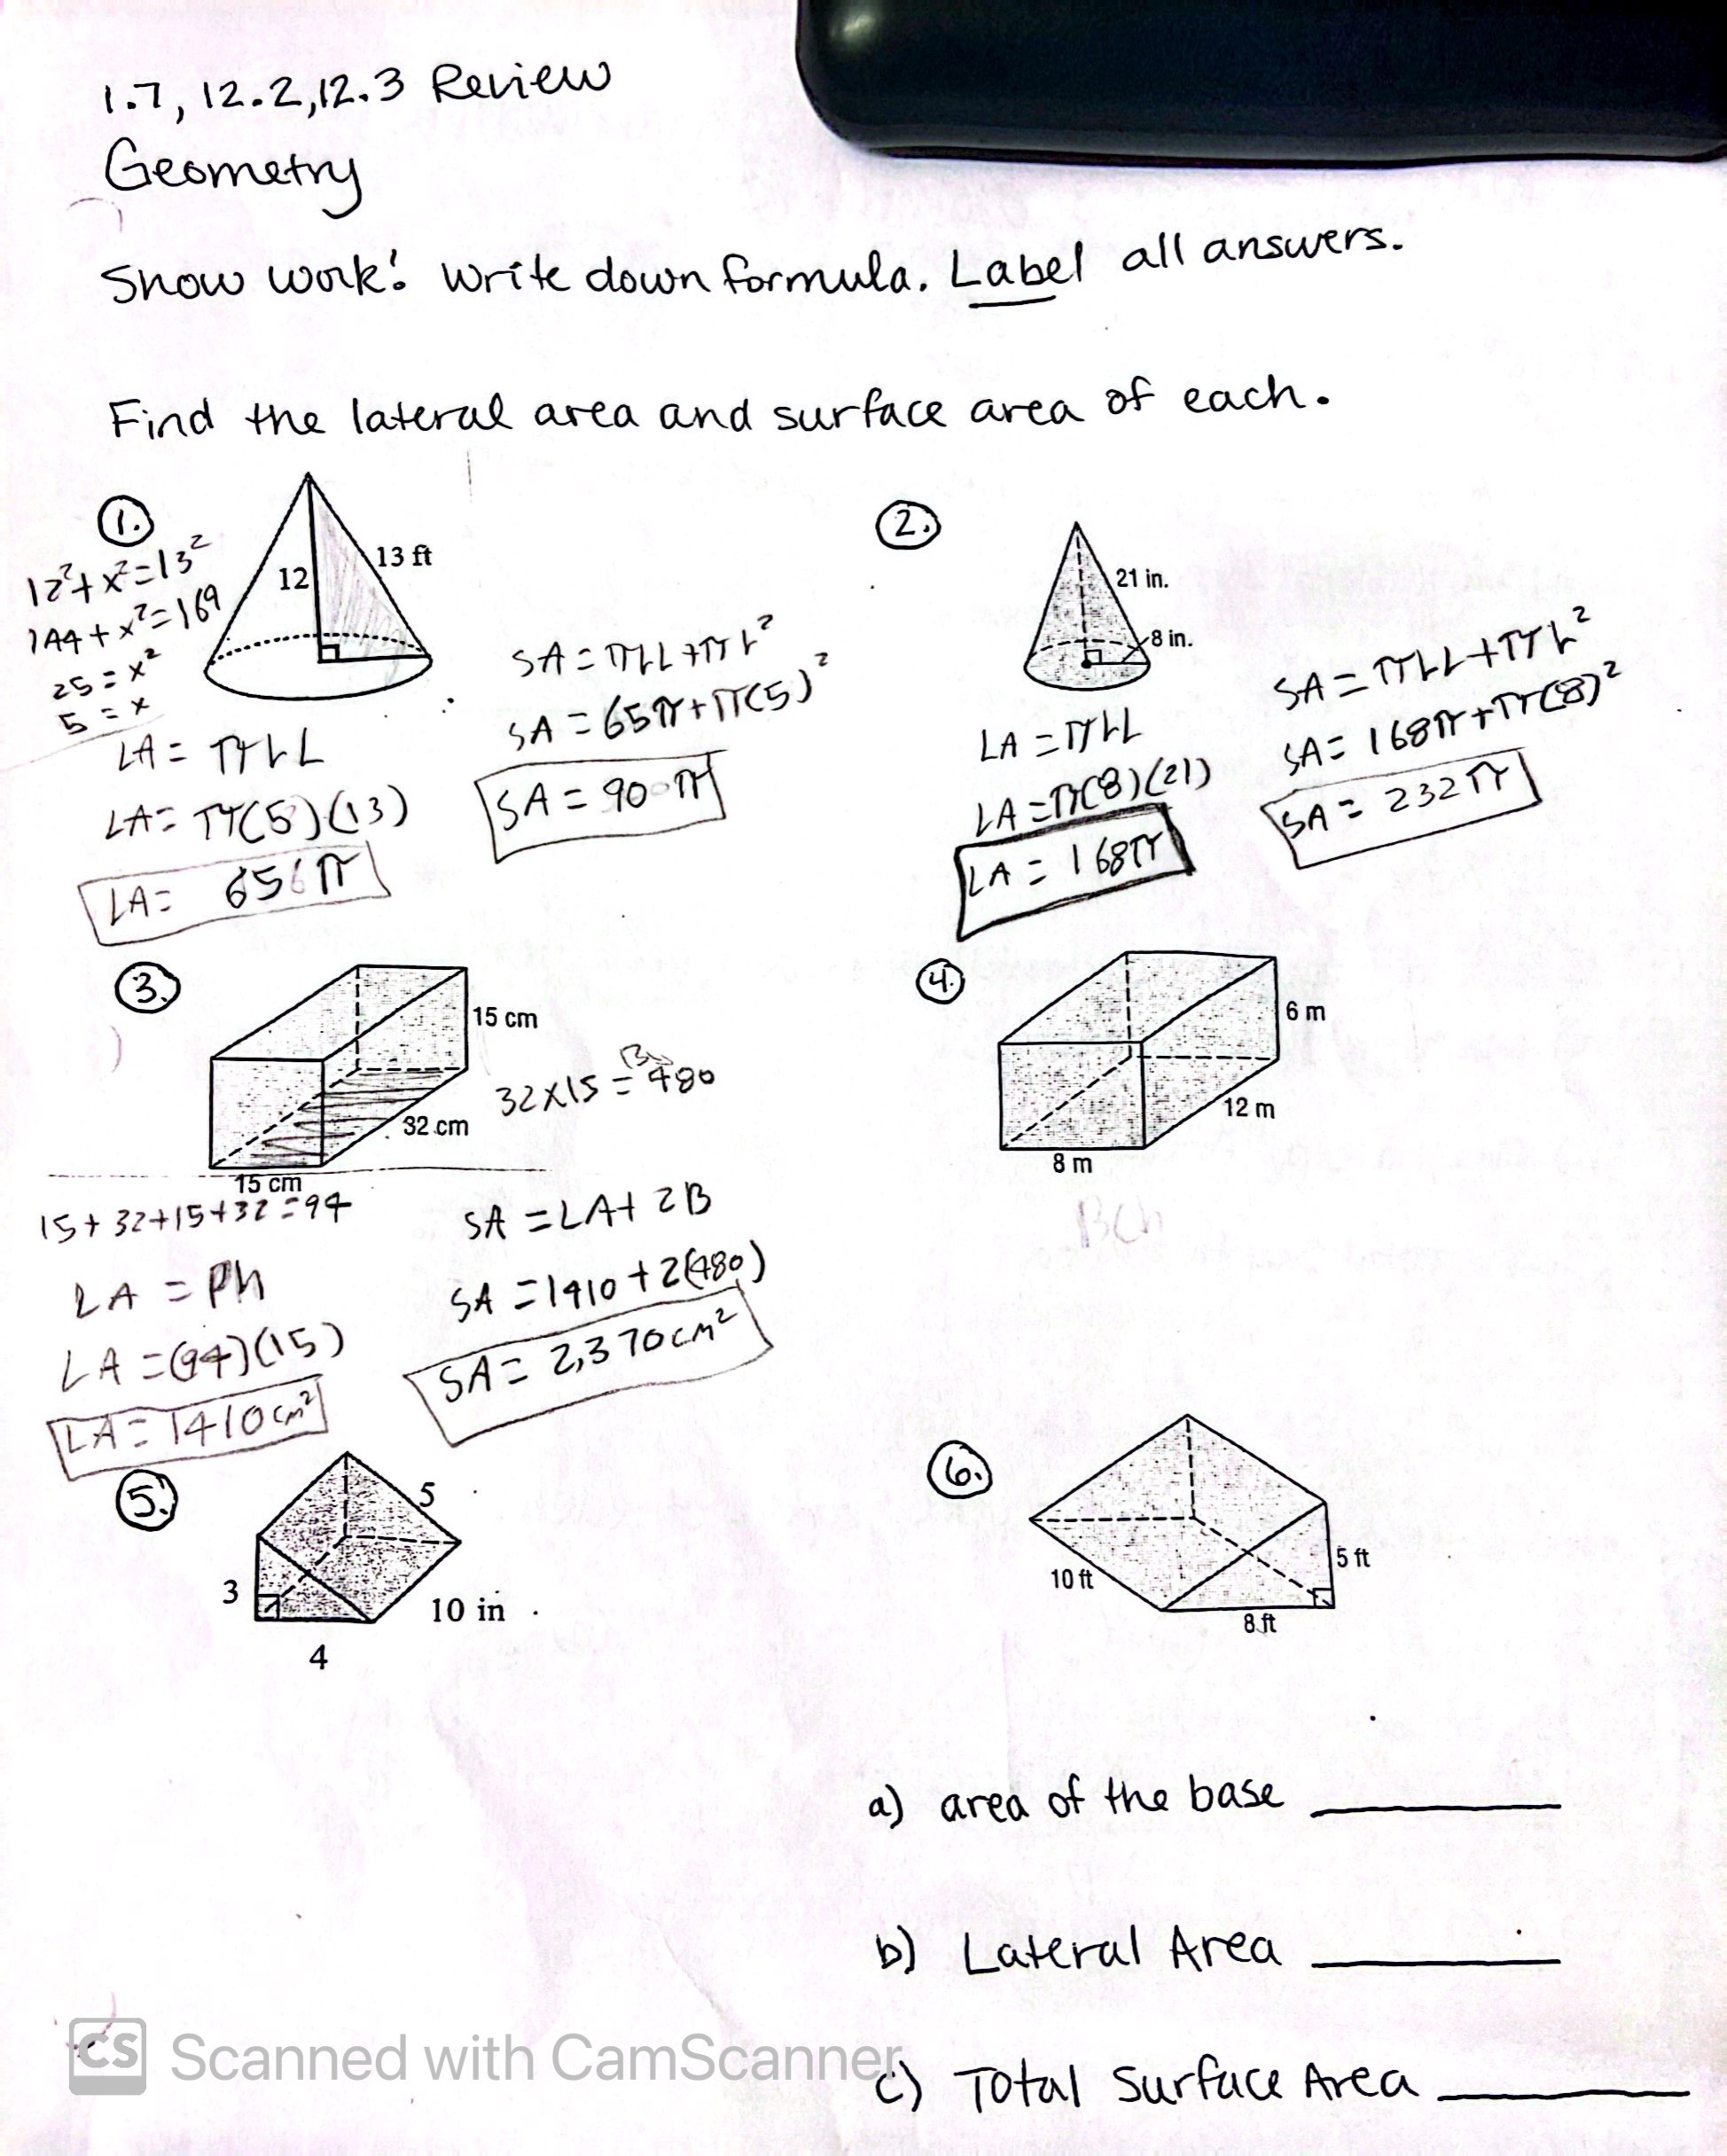 1.7, 12.2, 12.3 Review
Geometry
Show work! Write down formula. Label all answers.
Find the lateral area and surface area of each.
1.
12
13 ft
12²+x²=13²
144+x²=169
25=x²
5=x
LA = πrL
LA = π(5)(13)
LA = 65π
SA = πrL+πr²
SA = 65π+π(5)²
SA = 90π
2.
21 in.
8 in.
LA = πrL
LA = π(8)(21)
LA = 168π
SA = πrL+πr²
SA = 168π+π(8)²
SA = 232π
3.
15 cm
32 cm
15 cm
32×15=480
B
15+32+15+32=94
LA = Ph
LA = (94)(15)
LA = 1410cm²
SA = LA+2B
SA = 1410+2(480)
SA = 2,370cm²
4.
6 m
12 m
8 m
5.
5
3
10 in
4
6.
5 ft
10 ft
8 ft
a) area of the base
b) Lateral Area
c) Total Surface Area
CS Scanned with CamScanner